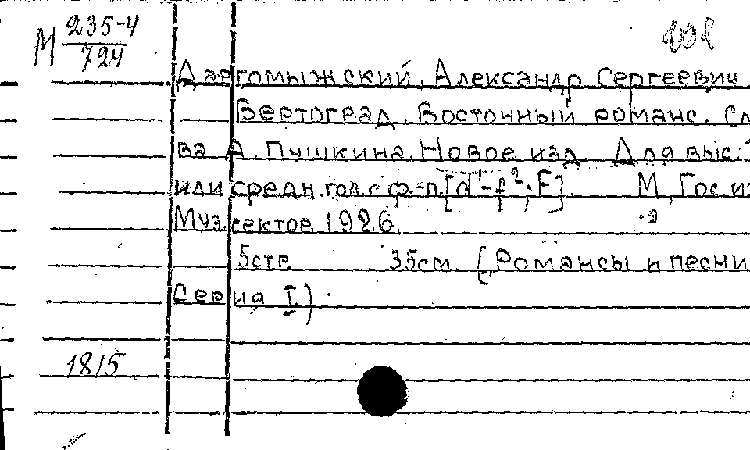 М 235-4
724
Даргомыжский, Александр Сергеевич
Вертоград. Восточный романс. Сл
ва А. Пушкина. Новое изд. Для выс.
или средн. гол. с ф-п. [d'-f²; F]. М., Гос. из
Муз. сектор 1926.
5 стр. 35 см. (Романсы и песни
Серия I.)
1815